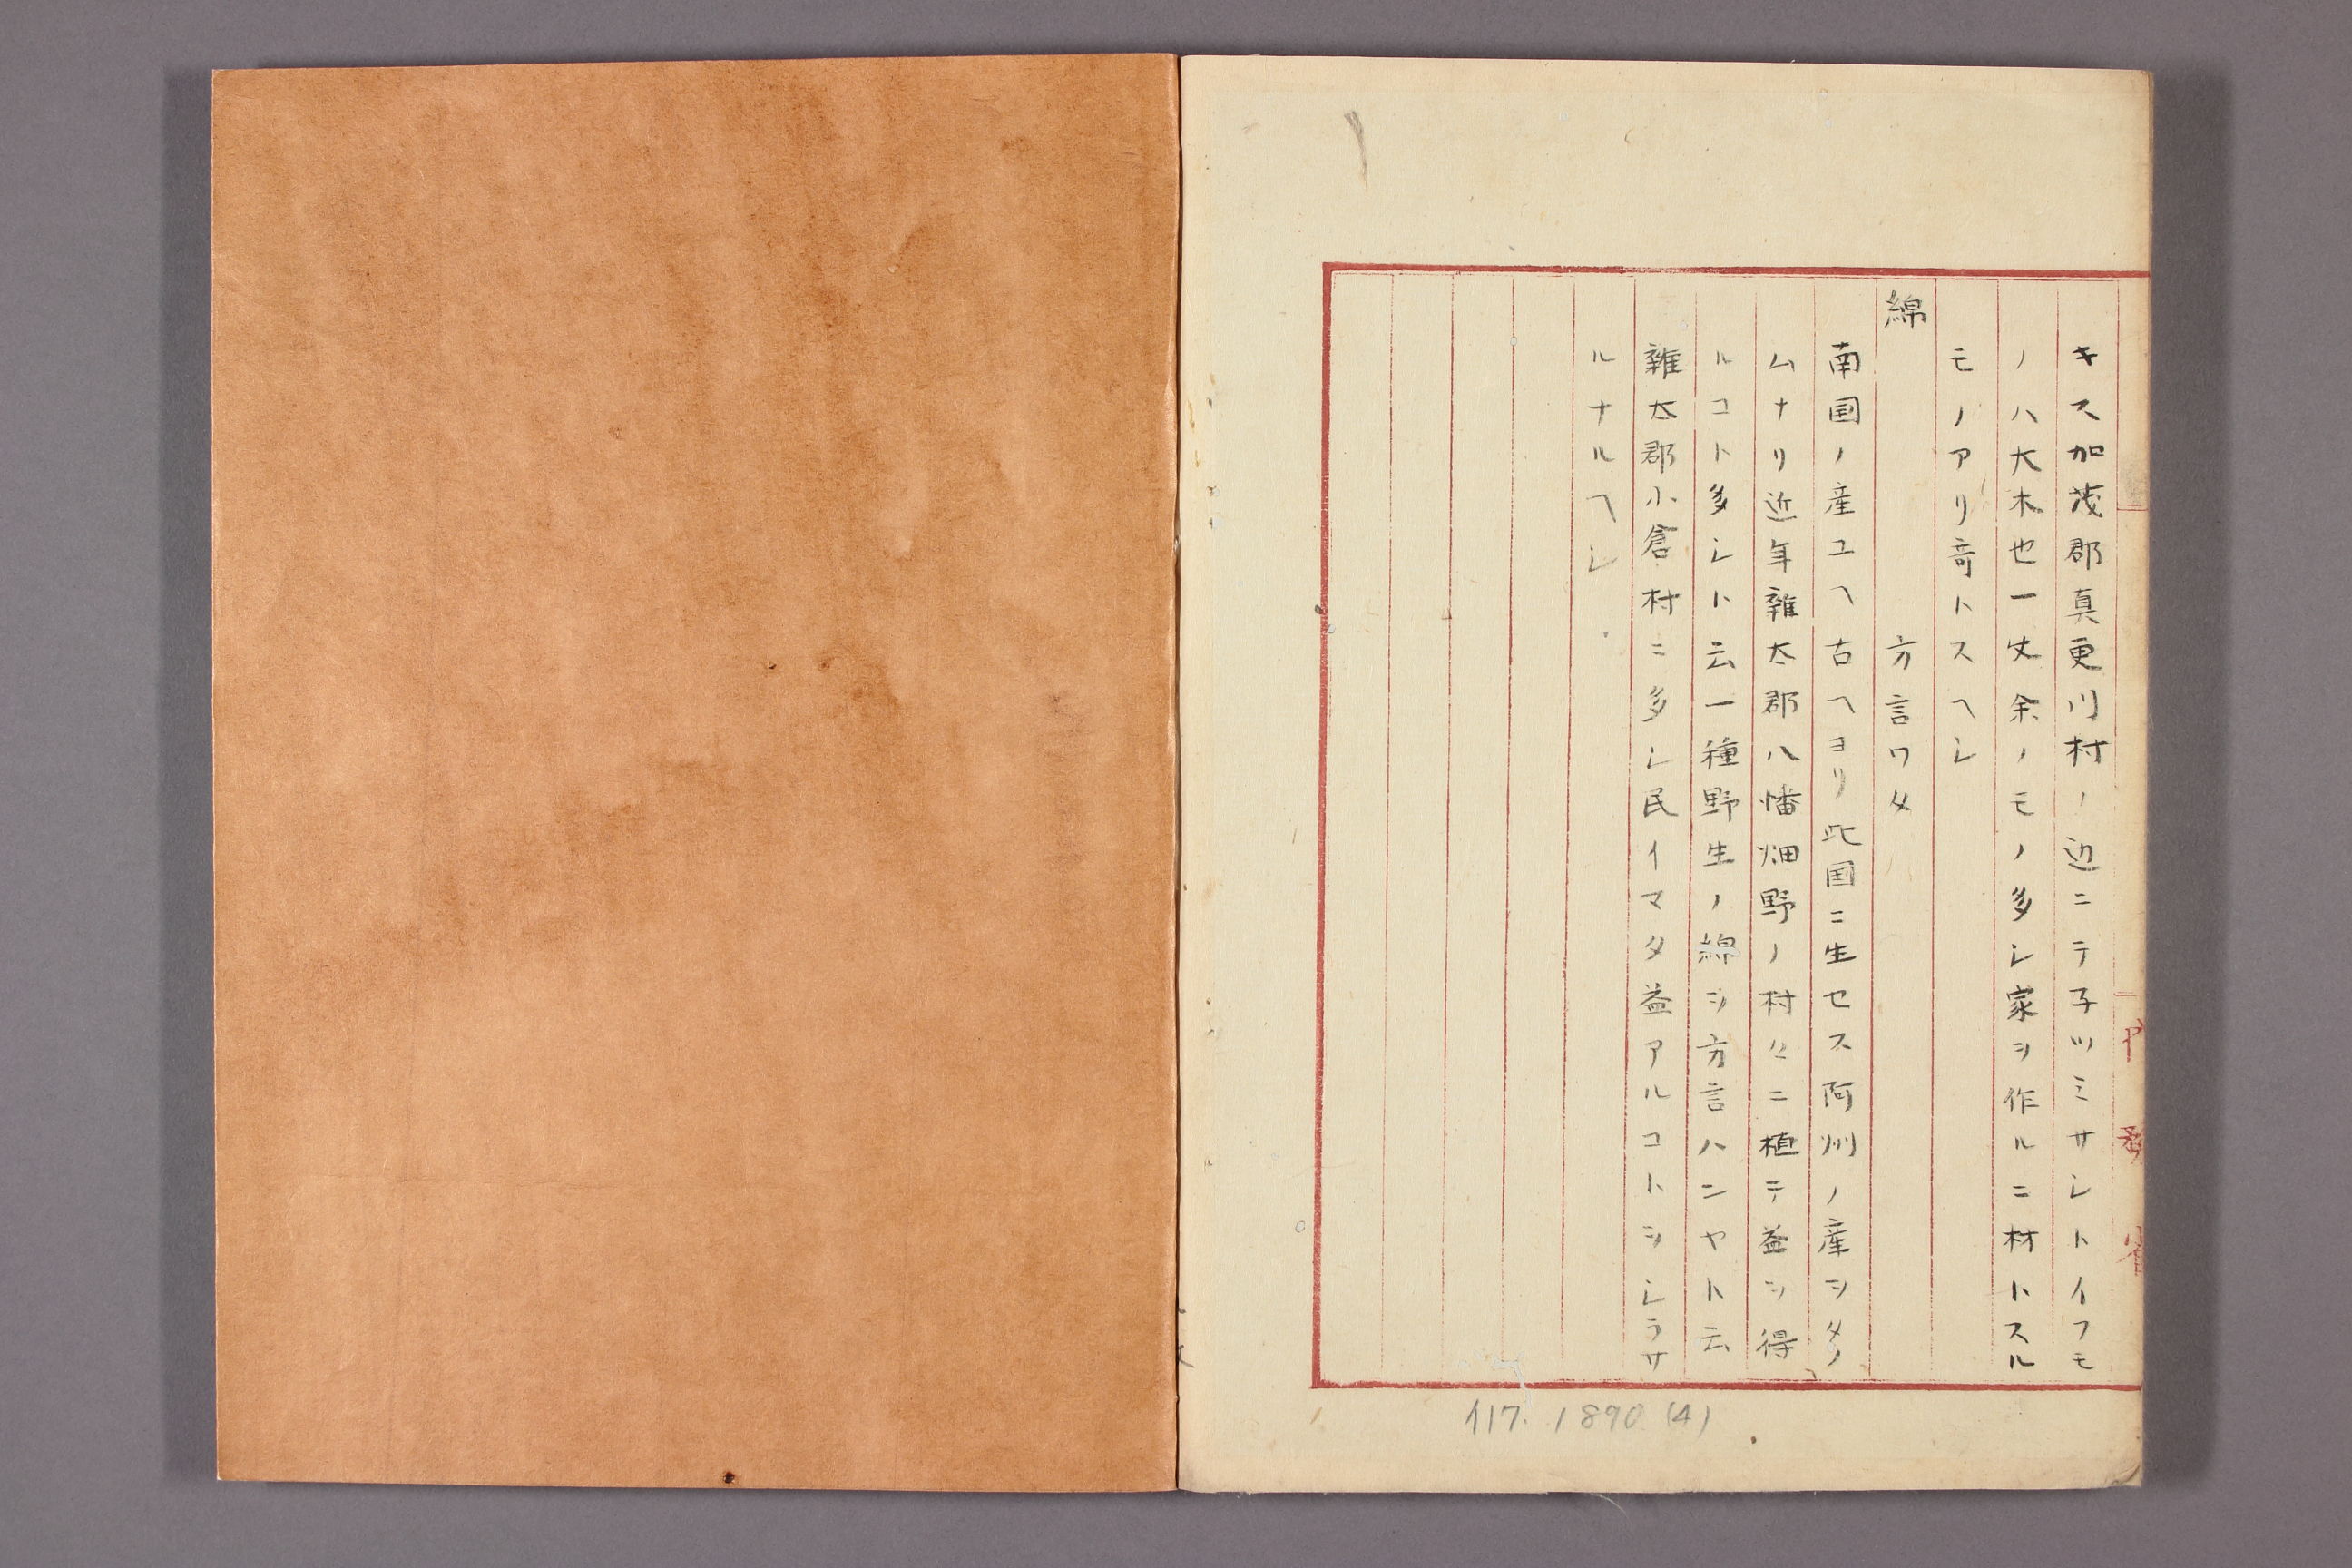 キス加茂郡真更川村ノ辺ニテ子ツミサシトイフモ
ノハ大木也一丈余ノモノ多シ家ヲ作ルニ材トスル
モノアリ奇トスヘシ
綿 方言ワタ
南国ノ産ユヘ古ヘヨリ此国ニ生セス阿州ノ産ヲタノ
ムナリ近年雑太郡八幡畑野ノ村々ニ植テ益ヲ得
ルコト多シト云一種野生ノ綿ヲ方言ハンヤト云
雑太郡小倉村ニ多シ民イマタ益アルコトヲシラサ
ルナルヘシ
117. 1890 (4)